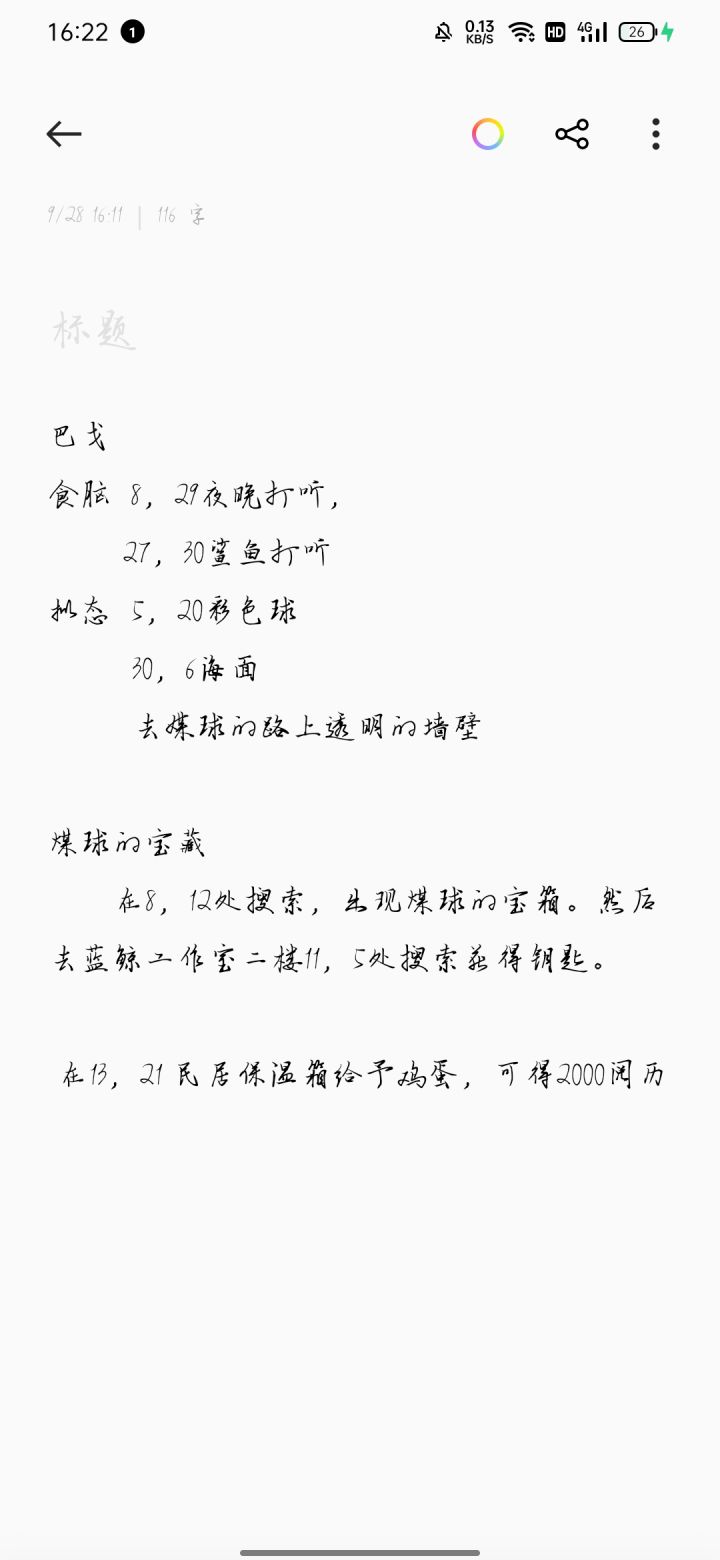 16:22 1 0.13 KB/S HD 4G 26
9/28 16:11 | 116 字
标题
巴戈
食脑 8，29夜晚打听，
27，30鲨鱼打听
拟态 5，20彩色球
30，6海面
去媒球的路上透明的墙壁
煤球的宝藏
在8，12处搜索，出现煤球的宝箱。然后
去蓝鲸工作室二楼11，5处搜索获得钥匙。
在13，21民居保温箱给予鸡蛋，可得2000阅历